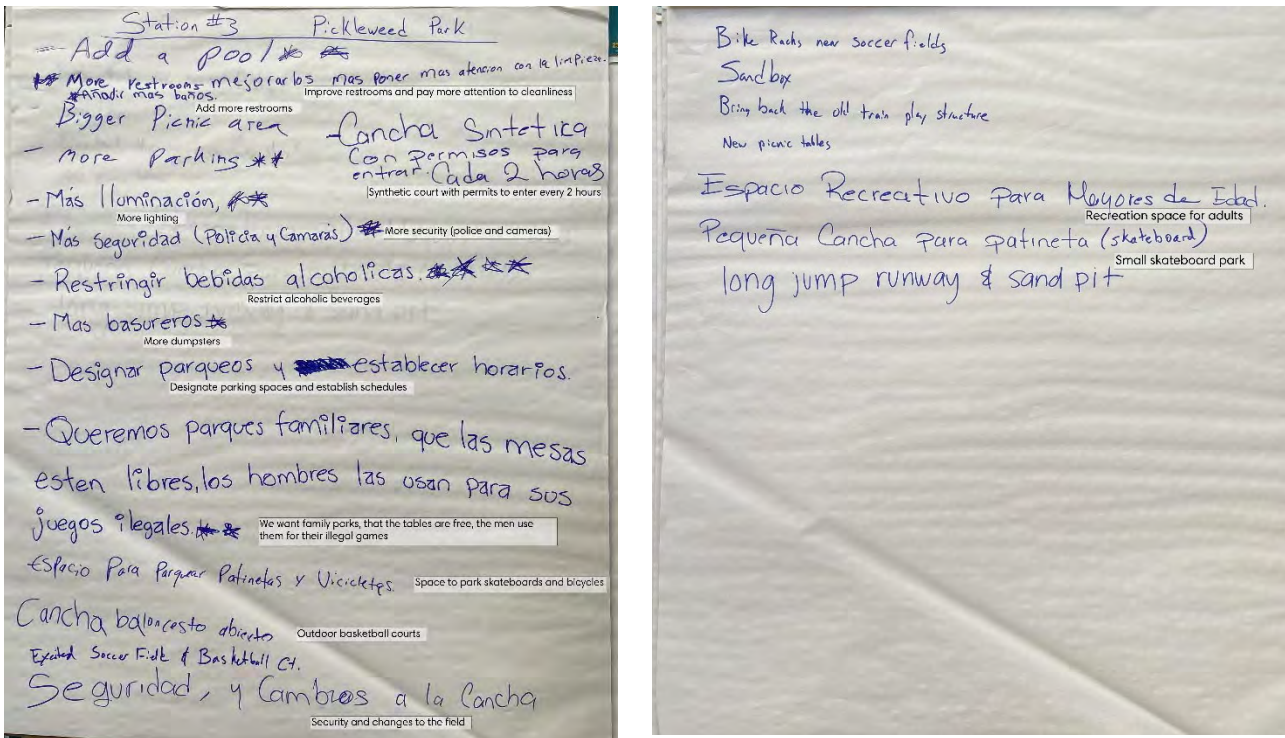 Station #3 Pickleweed Park
- Add a pool
More restrooms mejorarlos mas poner mas atencion con la limpieza.
Improve restrooms and pay more attention to cleanliness
Añadir mas baños.
Add more restrooms
Bigger Picnic area
- More Parking **
- Cancha Sintetica
Con permisos para
entrar Cada 2 horas
Synthetic court with permits to enter every 2 hours
- Más Iluminación,
More lighting
- Más Seguridad (Policía y Camaras)
More security (police and cameras)
- Restringir bebidas alcoholicas.
Restrict alcoholic beverages
- Mas basureros
More dumpsters
- Designar parqueos y establecer horarios.
Designate parking spaces and establish schedules
- Queremos parques familiares, que las mesas
esten libres, los hombres las usan para sus
juegos ilegales.
We want family parks, that the tables are free, the men use
them for their illegal games
Espacio Para Parquear Patinetas y Vicicletas.
Space to park skateboards and bicycles
Cancha baloncesto abierto
Outdoor basketball courts
Excited Soccer Field & Basketball Ct.
Seguridad, y Cambios a la Cancha
Security and changes to the field
Bike Racks, new soccer fields
Sandbox
Bring back the old train play structure
New picnic tables
Espacio Recreativo Para Mayores de Edad.
Recreation space for adults
Pequeña Cancha para patineta (skateboard)
Small skateboard park
long jump runway & sand pit